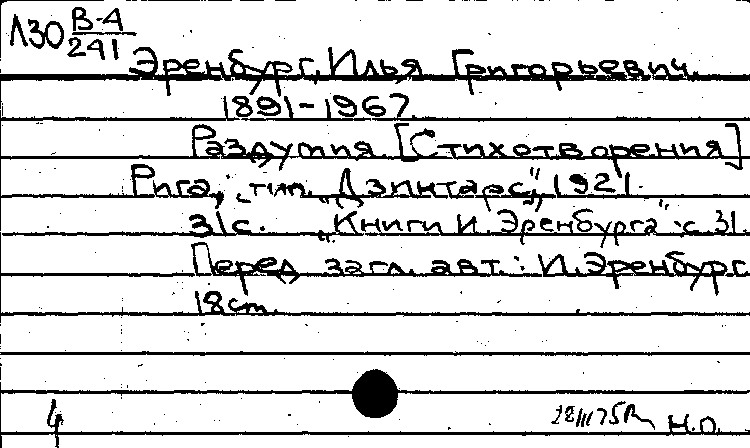 Л30 В-4/241
Эренбург, Илья Григорьевич.
1891-1967.
Раздумия [Стихотворения]
Рига, тип. "Дзинтарс", 1921.
31с. "Книги И. Эренбурга": с. 31.
Перед загл. авт.: И. Эренбург
18 см.
4
Н.О.